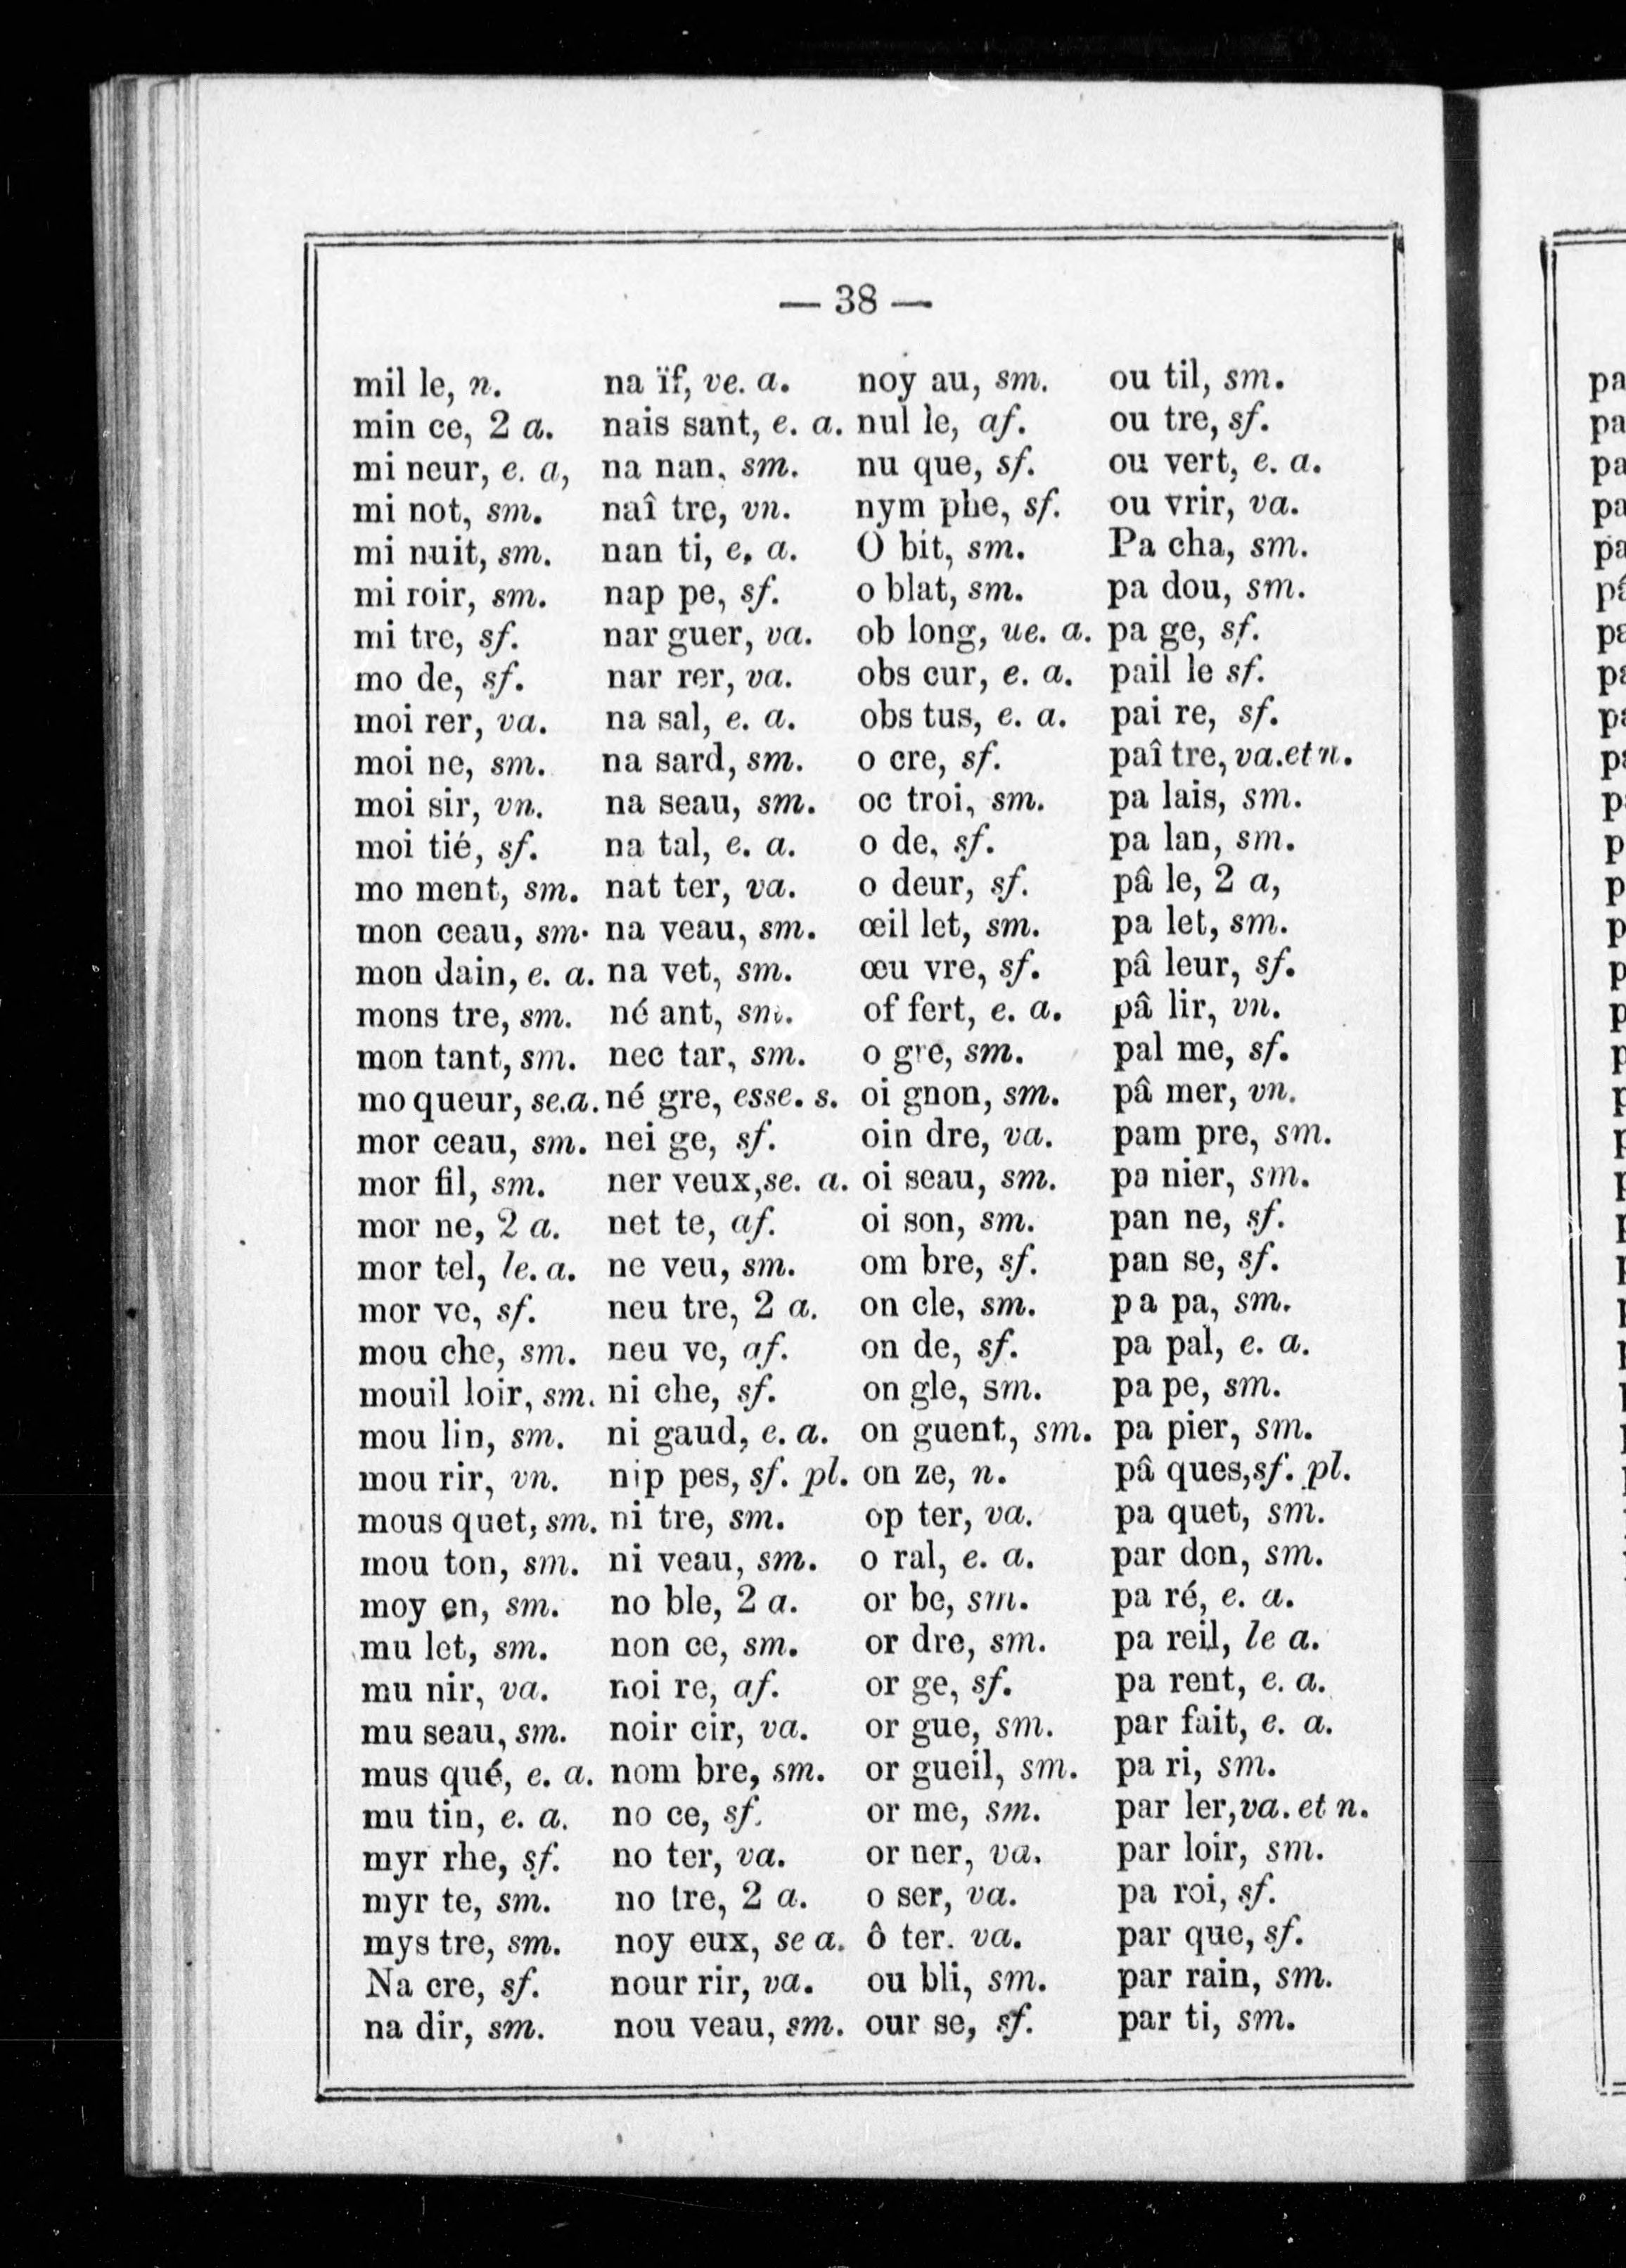 — 38 —
mil le, n.
min ce, 2 a.
mi neur, e. a,
mi not, sm.
mi nuit, sm.
mi roir, sm.
mi tre, sf.
mo de, sf.
moi rer, va.
moi ne, sm.
moi sir, vn.
moi tié, sf.
mo ment, sm.
mon ceau, sm.
mon dain, e. a.
mons tre, sm.
mon tant, sm.
mo queur, se.a.
mor ceau, sm.
mor fil, sm.
mor ne, 2 a.
mor tel, le. a.
mor ve, sf.
mou che, sm.
mouil loir, sm.
mou lin, sm.
mou rir, vn.
mous quet, sm.
mou ton, sm.
moy en, sm.
mu let, sm.
mu nir, va.
mu seau, sm.
mus qué, e. a.
mu tin, e. a.
myr rhe, sf.
myr te, sm.
mys tre, sm.
Na cre, sf.
na dir, sm.
na ïf, ve. a.
nais sant, e. a.
na nan, sm.
naî tre, vn.
nan ti, e, a.
nap pe, sf.
nar guer, va.
nar rer, va.
na sal, e. a.
na sard, sm.
na seau, sm.
na tal, e. a.
nat ter, va.
na veau, sm.
na vet, sm.
né ant, sm.
nec tar, sm.
né gre, esse. s.
nei ge, sf.
ner veux,se. a.
net te, af.
ne veu, sm.
neu tre, 2 a.
neu ve, af.
ni che, sf.
ni gaud, e. a.
nip pes, sf. pl.
ni tre, sm.
ni veau, sm.
no ble, 2 a.
non ce, sm.
noi re, af.
noir cir, va.
nom bre, sm.
no ce, sf.
no ter, va.
no tre, 2 a.
noy eux, se a.
nour rir, va.
nou veau, sm.
noy au, sm.
nul le, af.
nu que, sf.
nym phe, sf.
O bit, sm.
o blat, sm.
ob long, ue. a.
obs cur, e. a.
obs tus, e. a.
o cre, sf.
oc troi, sm.
o de, sf.
o deur, sf.
œil let, sm.
œu vre, sf.
of fert, e. a.
o gre, sm.
oi gnon, sm.
oin dre, va.
oi seau, sm.
oi son, sm.
om bre, sf.
on cle, sm.
on de, sf.
on gle, sm.
on guent, sm.
on ze, n.
op ter, va.
o ral, e. a.
or be, sm.
or dre, sm.
or ge, sf.
or gue, sm.
or gueil, sm.
or me, sm.
or ner, va.
o ser, va.
ô ter. va.
ou bli, sm.
our se, sf.
ou til, sm.
ou tre, sf.
ou vert, e. a.
ou vrir, va.
Pa cha, sm.
pa dou, sm.
pa ge, sf.
pail le sf.
pai re, sf.
paî tre, va.et n.
pa lais, sm.
pa lan, sm.
pâ le, 2 a,
pa let, sm.
pâ leur, sf.
pâ lir, vn.
pal me, sf.
pâ mer, vn.
pam pre, sm.
pa nier, sm.
pan ne, sf.
pan se, sf.
pa pa, sm.
pa pal, e. a.
pa pe, sm.
pa pier, sm.
pâ ques,sf. pl.
pa quet, sm.
par don, sm.
pa ré, e. a.
pa reil, le a.
pa rent, e. a.
par fait, e. a.
pa ri, sm.
par ler,va. et n.
par loir, sm.
pa roi, sf.
par que, sf.
par rain, sm.
par ti, sm.